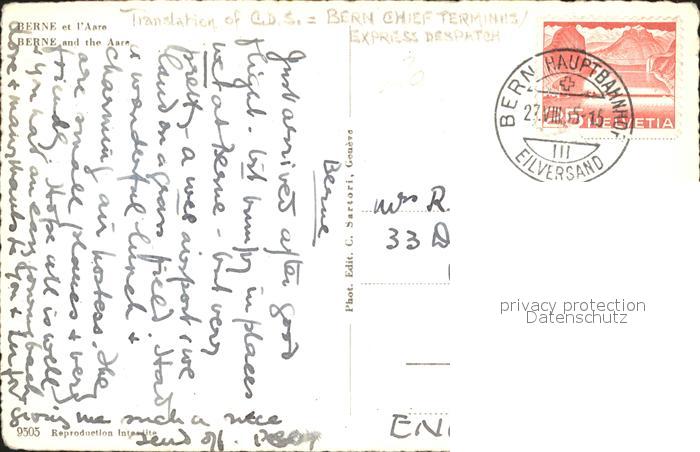 BERNE et l'Aare
BERNE and the Aare
Translation of C.D.S. = BERN CHIEF TERMINUS/
EXPRESS DESPATCH
Berne
Just arrived after good
flight - bit bumpy in places
wet at Berne - but very
pretty & a wee airport & we
land on a grass field. Had
a wonderful lunch &
charming air hostess. The
are small planes & very
friendly. Hope all is well
& you had an easy journey back
Love & many thanks to you &
giving me such a nice
send off.
Phot. Edit. C. Sartori, Genève
Mrs R.
33 D
EN
9505 Reproduction Interdite
HELVETIA
BERN HAUPTBAHNHOF
27.VIII.55-16
III
EILVERSAND
privacy protection
Datenschutz